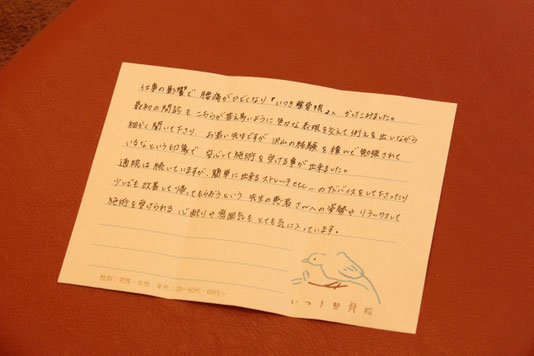 仕事の影響で腰痛がひどくなり『いつき整骨院』へかけこみました。
最初の問診もこちらが答え易いように色々な表現を変えて例えを出しながら
細かく聞いて下さり お若い先生ですが沢山の経験を積んで勉強されて
いるなという印象で 安心して施術を受ける事が出来ました。
通院は続いていますが、簡単に出来るストレッチ のアドバイスをして下さったり
少しでも改善して帰ってもらおうという 先生の患者さんへの姿勢や リラックスして
施術を受けられる 心配りや雰囲気もとても気に入っています。
性別：男性・女性 年代：20～50代・60代～
いつき整骨院